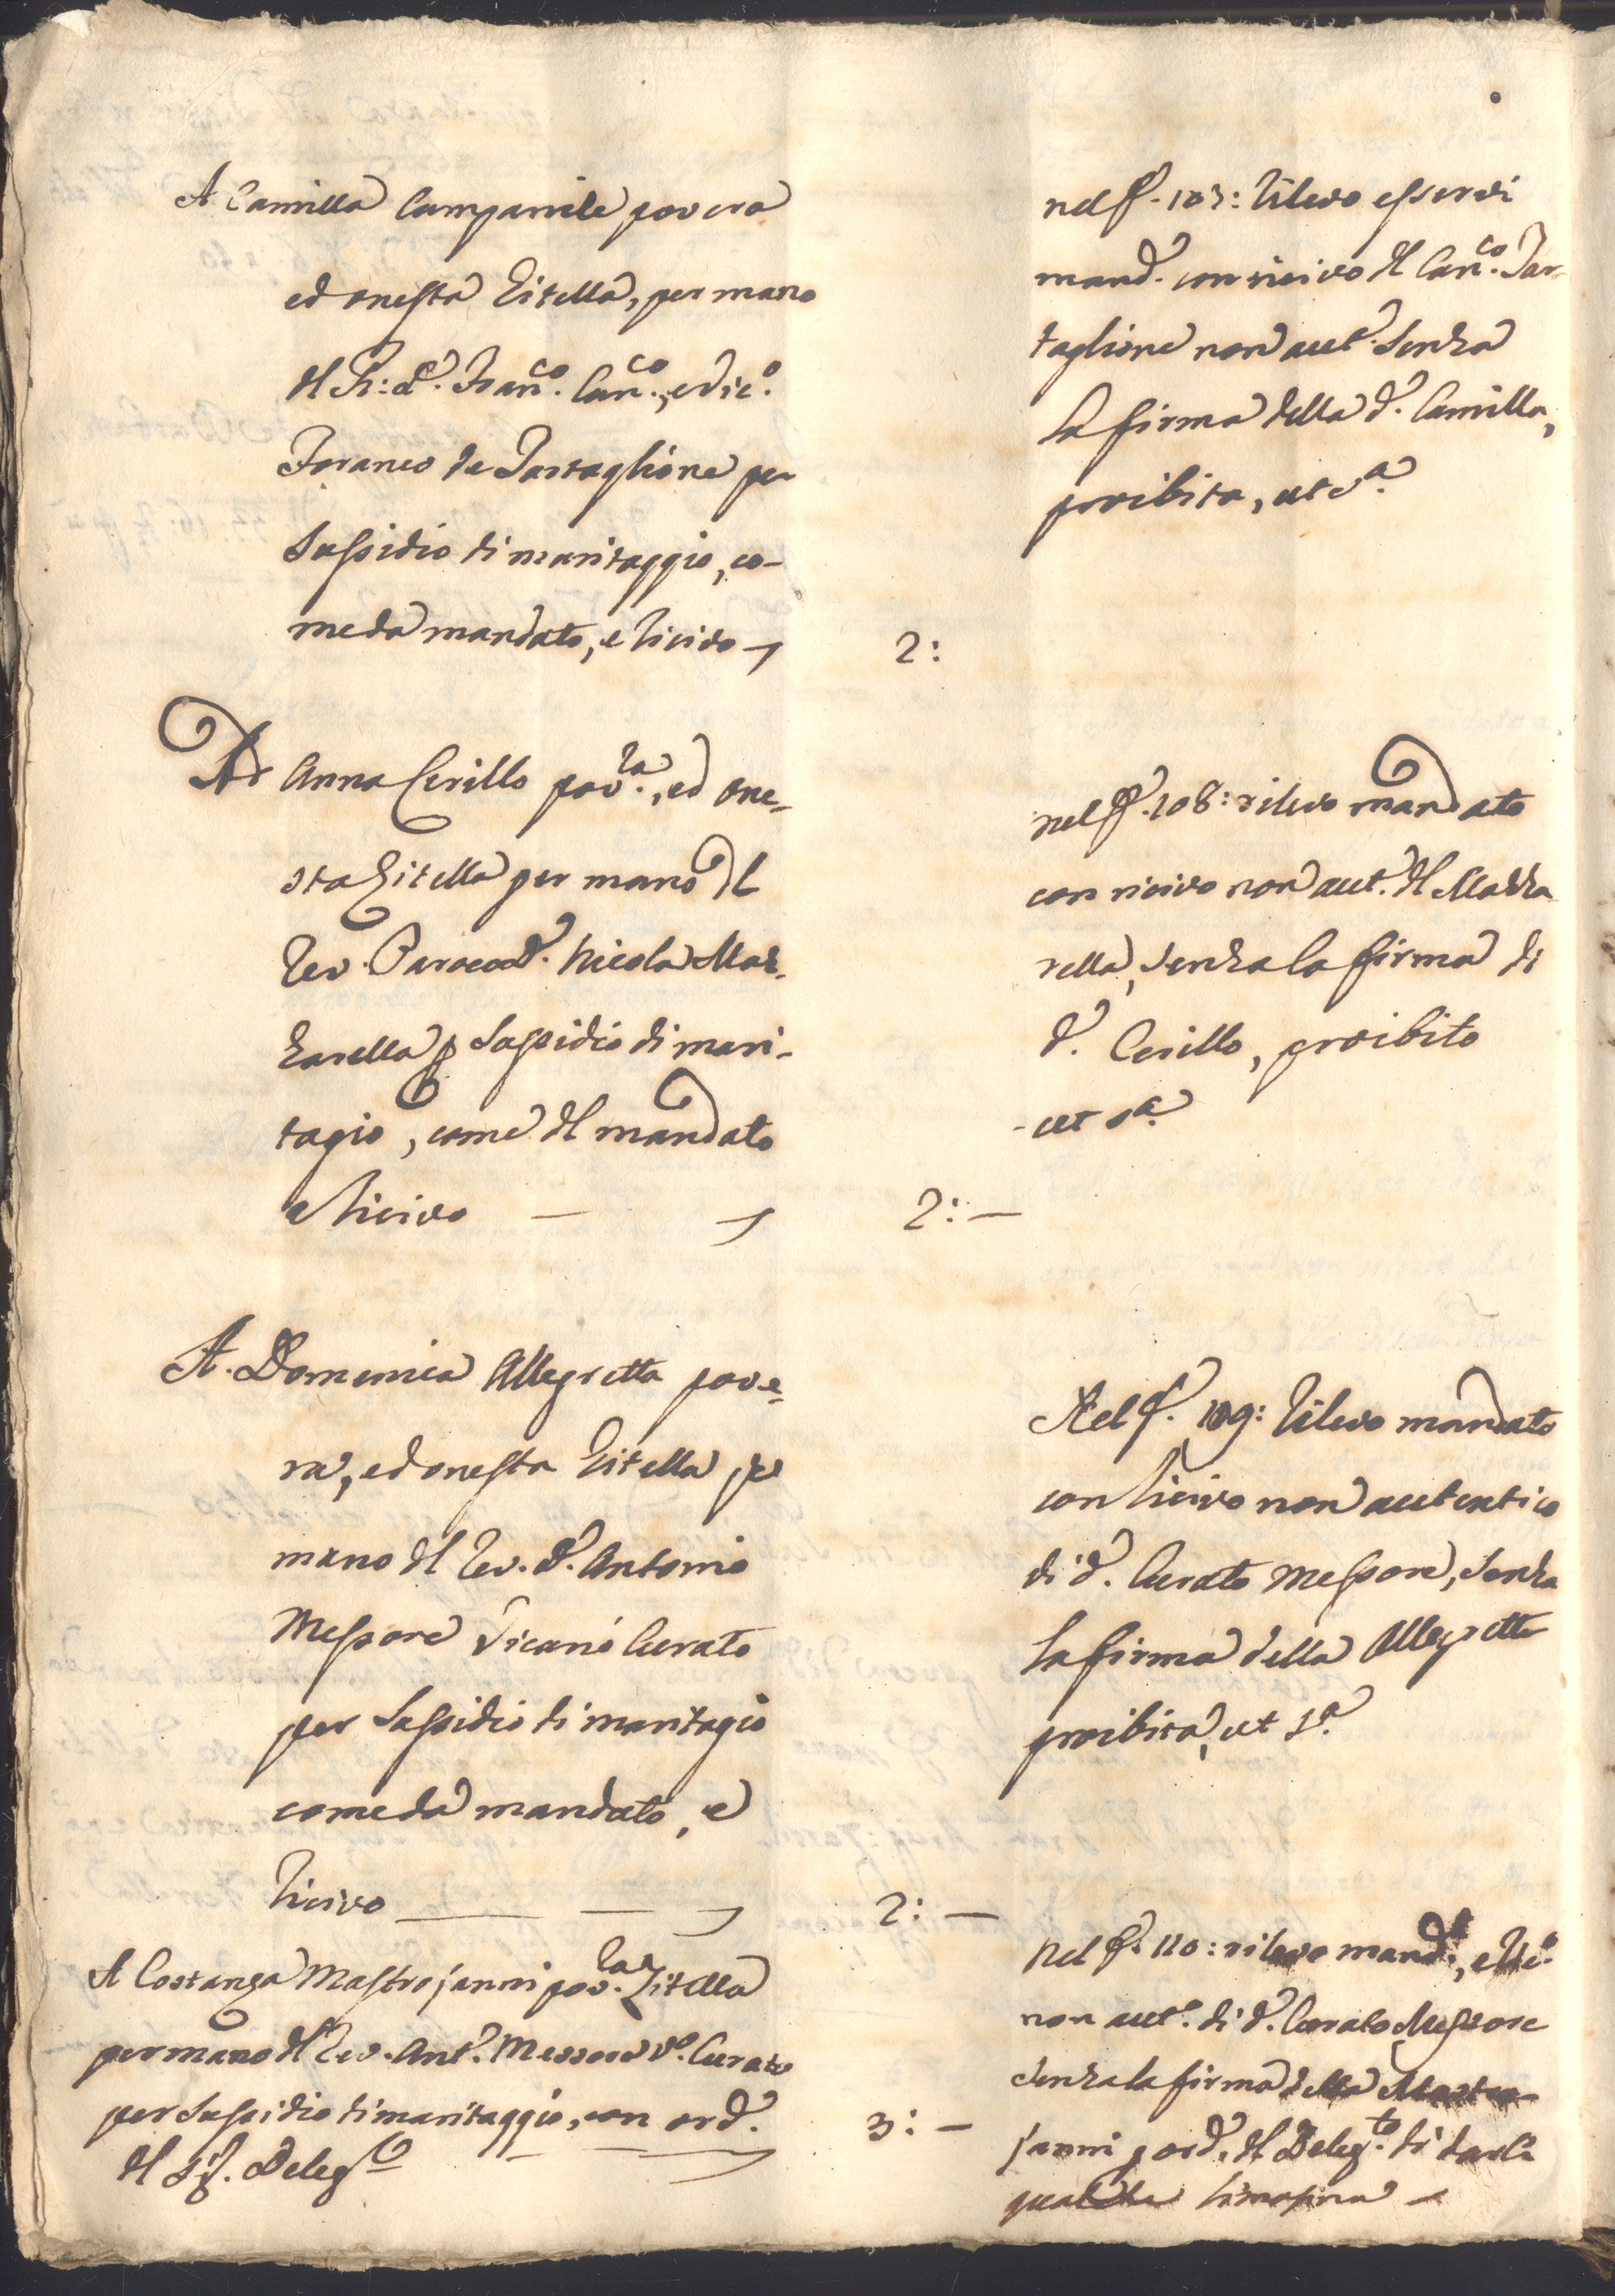 A Camilla Campanile povera
ed onesta Zitella, per mano
del R: d. Franco. Canco., e Vico.
Foraneo de Tartaglione per
Sussidio di maritaggio, co-
me da mandato, e ricivo
2:
nel f. 107: rilevo esservi
mand. con ricivo del Canco. Tar-
taglione non aut. Senza
la firma della d. Camilla,
proibita, ut sa.
Ad Anna Cerillo pov.ra, ed one-
sta Zitella per mano del
Rev. Paroco d. Nicola Maz-
zarella p Sussidio di mari-
tagio, come del mandato
e ricivo
2: —
nel f. 108: rilevo mandato
con ricivo non aut. del Mazza
rella, senza la firma di
d. Cerillo, proibito
ut sa.
A. Domenica Allegretta pove-
ra, ed onesta Zitella pe
mano del Rev. d. Antonio
Messore Vicario Curato
per Sussidio di maritagio
come da mandato, e
ricivo
2: —
Nel f. 109: rilevo mandato
con ricivo non autentico
di d. Curato Messore, senza
la firma della Allegretta
proibita, ut sa.
A Costanza Mastrojanni pov.ra Zitella
per mano del Rev. Ant. Messore Vo. Curato
per Sussidio di maritaggio, con ord.
del Sig. Delegto
3: —
Nel f. 110: rilevo mand., e ric.
non aut. di d. Curato Messore
senza la firma della Mastro-
janni p ord. del Delegto. di darli
qualche limosina